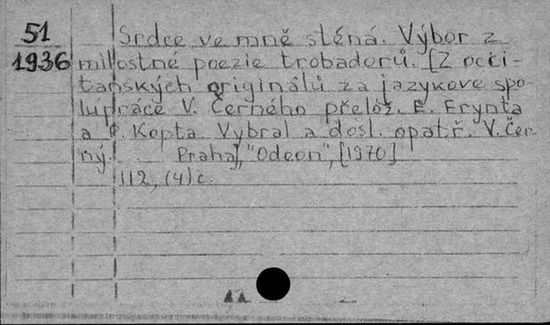 51
1936
Srdce ve mně sténá. Výbor z
milostné poezie trobadorů. [Z occi-
tanských originálů za jazykové spo-
lupráce V. Černého přelož. E. Frynta
a P. Kopta Vybral a dosl. opatř. V. Čer-
ný. Praha], "Odeon", [1970]
112, (4) c.